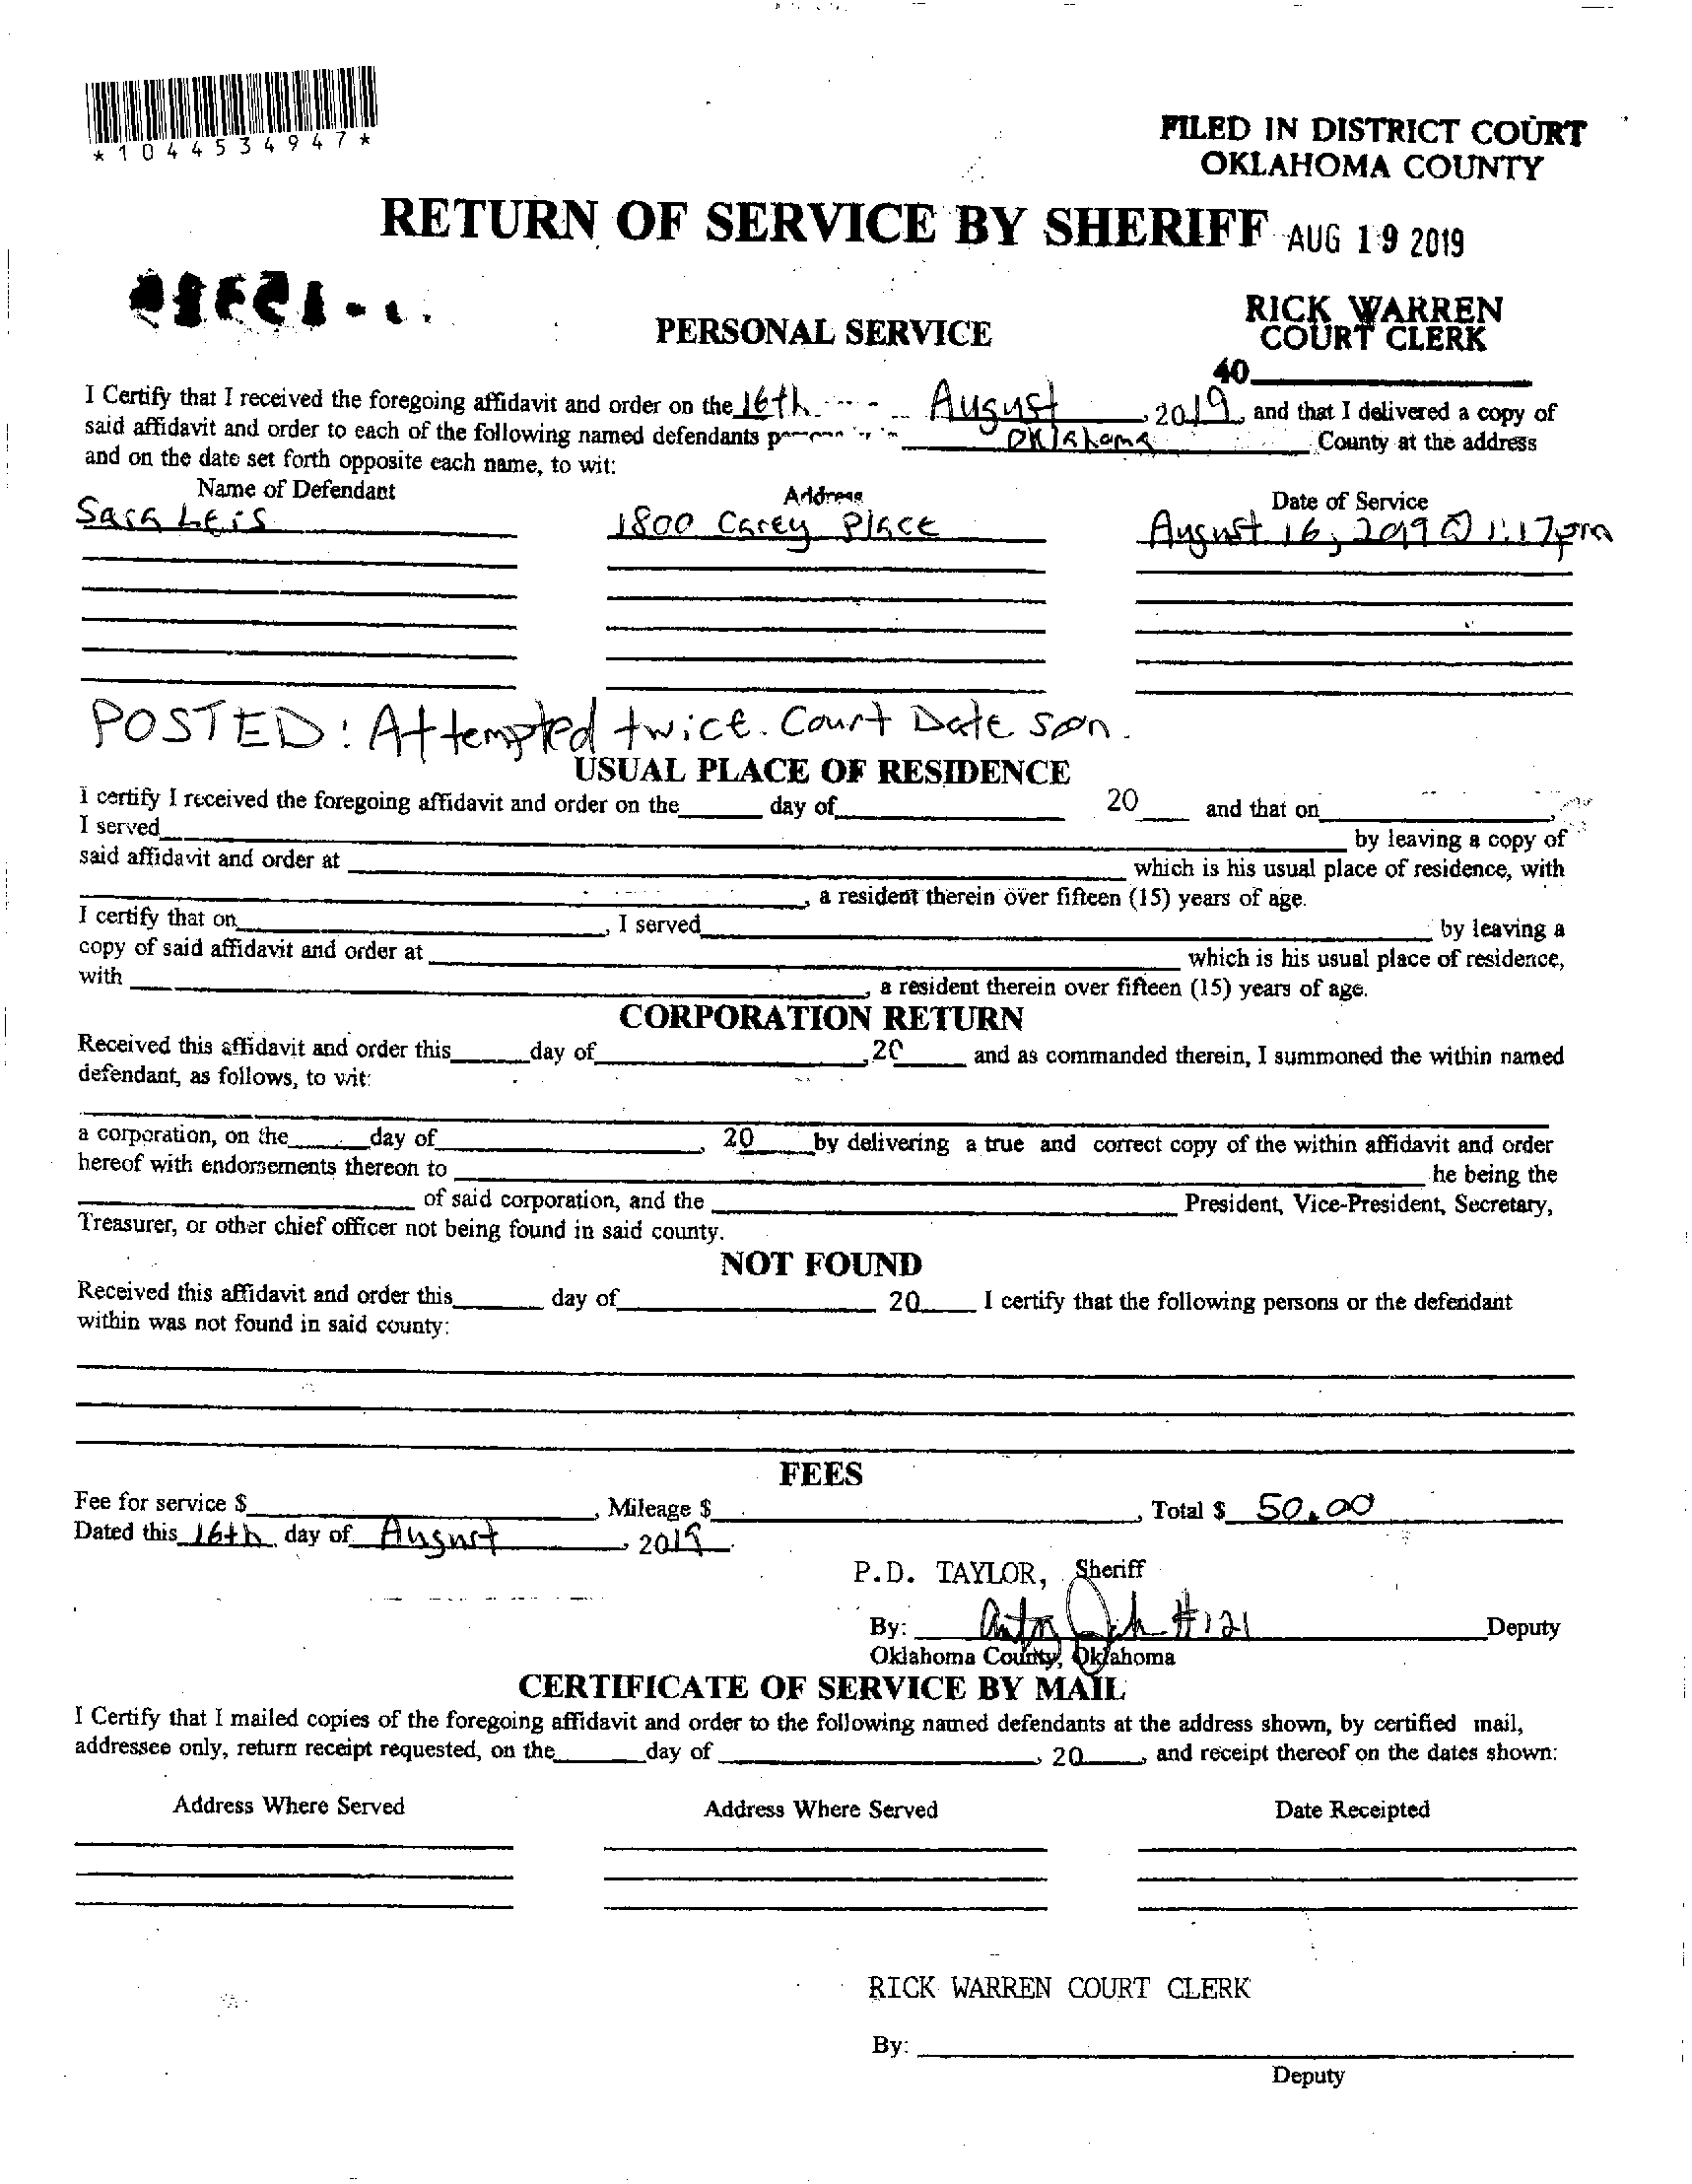 *1044534947*
FILED IN DISTRICT COURT
OKLAHOMA COUNTY
RETURN OF SERVICE BY SHERIFF AUG 19 2019
RICK WARREN
COURT CLERK
PERSONAL SERVICE
40
I Certify that I received the foregoing affidavit and order on the 16th August, 2019, and that I delivered a copy of
said affidavit and order to each of the following named defendants Oklahoma County at the address
and on the date set forth opposite each name, to wit:
Name of Defendant Address Date of Service
Sara Leis 1800 Carey Place August 16, 2019 @ 1:17pm
POSTED: Attempted twice. Court Date soon.
USUAL PLACE OF RESIDENCE
I certify I received the foregoing affidavit and order on the day of 20 and that on
I served by leaving a copy of
said affidavit and order at which is his usual place of residence, with
, a resident therein over fifteen (15) years of age.
I certify that on , I served by leaving a
copy of said affidavit and order at which is his usual place of residence,
with , a resident therein over fifteen (15) years of age.
CORPORATION RETURN
Received this affidavit and order this day of , 20 and as commanded therein, I summoned the within named
defendant, as follows, to wit:
a corporation, on the day of , 20 by delivering a true and correct copy of the within affidavit and order
hereof with endorsements thereon to he being the
of said corporation, and the President, Vice-President, Secretary,
Treasurer, or other chief officer not being found in said county.
NOT FOUND
Received this affidavit and order this day of 20 I certify that the following persons or the defendant
within was not found in said county:
FEES
Fee for service $ , Mileage $ , Total $ 50.00
Dated this 16th day of August , 2019
P.D. TAYLOR, Sheriff
By: #121 Deputy
Oklahoma County, Oklahoma
CERTIFICATE OF SERVICE BY MAIL
I Certify that I mailed copies of the foregoing affidavit and order to the following named defendants at the address shown, by certified mail,
addressee only, return receipt requested, on the day of , 20 , and receipt thereof on the dates shown:
Address Where Served Address Where Served Date Receipted
RICK WARREN COURT CLERK
By:
Deputy